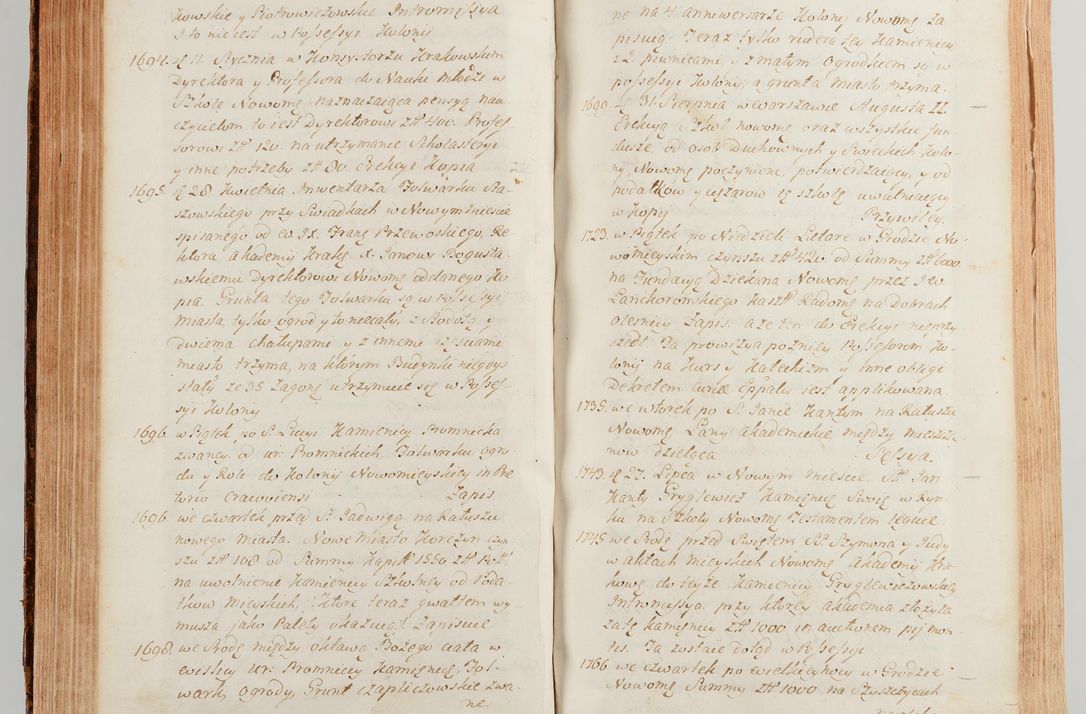 kowskie y Piotrowiczowskie Intromissya
a to nie iest w Possessyi Kolonij
1694. d 11. Stycznia w Konsystorzu Krakowskim
Dyrektora y Professora do Nauki młodzi w
Szkole Nowomę naznaczaiąca pensyą nau
czycielom to iest Dyrektorowi zł 400. Profes
sorowi zł 120. na utrzymanie Scholasteryi
y inne potrzeby zł 80. Erekcyi Kopia
1695. d 28 Kwietnia Inwentarza Folwarku Sta-
szowskiego przy Swiadkach w Nowym Miescie
spisanego od X. Franę Przewoskiego, Re
ktora Akademij Krakę X. Janowi Bogusła-
wskiemu Dyrektorowi Nowomę oddanego Ko
pia. Grunta tego Folwarku są w Possessyi
Miasta, tylko ogrod y to niecały, z Stodołą y
dwiema chałupami y z innemi częsciami
miasto trzyma, na którym Budynki niegdys
stały ze 35 zagonę utrzymuie się w Posses-
syi Kolonij
1696. w Piątek po S. Łucyi Kamienicy Promnicka
zwaney od ur. Promnickich, Folwarku ogro-
du y Role do Kolonij Nowomieyskiey in Prę
torio Cracoviensi Zapis
1696. we czwartek przed S. Jadwigą na Ratuszu
nowego Miasta. Nowe Miasto Korczyn czyn
szu zł 108 od Summy Kapitł 1550 zł
na uwolnienie Kamienicy Szkolney od Poda-
tkow Mieyskich, które teraz gwałtem wy-
musza jako Palety okazuią Zapisuie
1698. we Srodę między oktawą Bożego ciała w
Wislicy ur. Promniccy Kamienicę, Fol-
wark, ogrody, Grunt Czapliczowskie zwa-
ne.
ne na 4 anniwersarze Kolonij Nowomę Za
pisuią. Teraz tylko rudera tey Kamienicy
z 2 piwnicami, y z małym ogrodkiem są w
possessyi Kolonij, a grunta Miasto trzyma.
1699. d 31. Sierpnia w Warszawie Augusta II.
Erekcyą Szkoł nowomę oraz wszystkie fun
dusze od osob Duchownych y Swieckich Kolo-
nij Nowomę poczynione, potwierdzaiący, y od
podatkow y cięzarow tę szkołę uwalniaiący
w Kopij Przywiley.
1723. w Piątek po Niedzieli Lætare w Grodzie No-
womieyskim czynszu zł 420 od Summy zł 6000
na Fundacyą Dziekana Nowomę przez JW
Lanckoronskiego Kaszł Radomę na Dobrach
Olesnicy Zapis. a że ten do Erekcyi nieprzy
szedł. Ta prowizya poznieỵ Possessorom Ko-
lonij na Kursy Katechizm y inne obligi
Dekretem Curiæ Eppalis iest applikowana.
1735. we wtorek po S. Janie Kantym na Ratuszu
Nowomę Łany akademickie między mieszcza-
now dzieląca Sessya.
1743. d 27. Lipca w Nowym Miescie X. Jan
Kanty Gryglewicz Kamięnicę Swoię w Ryn-
ku na Szkoły Nowomę Testamentem leguie.
1745 we Srodę przed Swiętem SS. Szymona y Judy
w aktach mieyskich Nowomę Akademij Kra
kowę do teyże Kamienicy Gryglewiczowskiey
Intromissya przy którey Akademia złożyła
załę kamienicy zł 1000 in auctionem pij mon
tis. Ta zostaie dotąd w Possessyi
1766 we czwartek po Wielkieynocy w Grodzie
Nowomę Summy zł 1000 na Szyszczycach